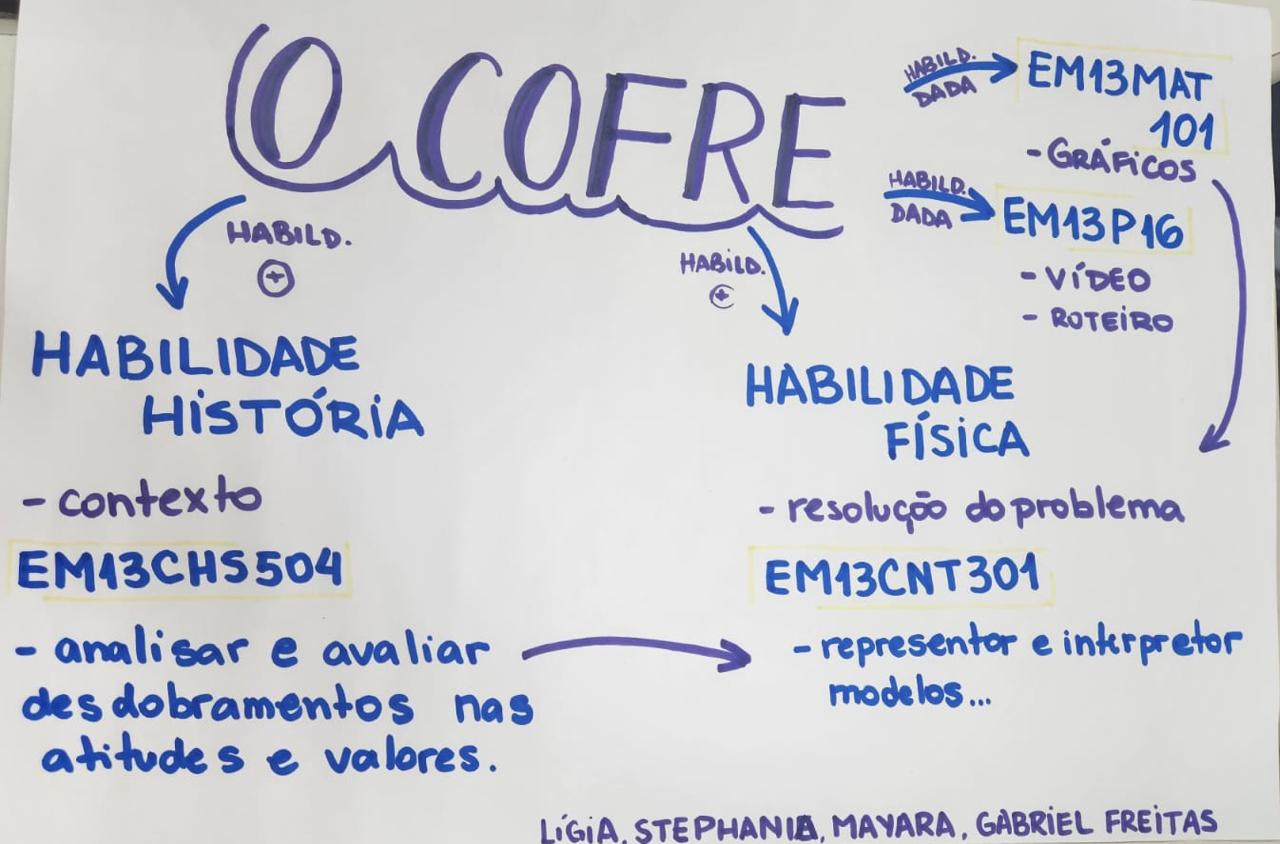 O COFRE
HABILD.
DADA
EM13MAT
101
- GRÁFICOS
HABILD.
DADA
EM13P16
- VÍDEO
- ROTEIRO
HABILD.
+
HABILIDADE
HISTÓRIA
- contexto
EM13CHS504
- analisar e avaliar
desdobramentos nas
atitudes e valores.
HABILD.
+
HABILIDADE
FÍSICA
- resolução do problema
EM13CNT301
- representar e interpretar
modelos...
LÍGIA, STEPHANIA, MAYARA, GABRIEL FREITAS